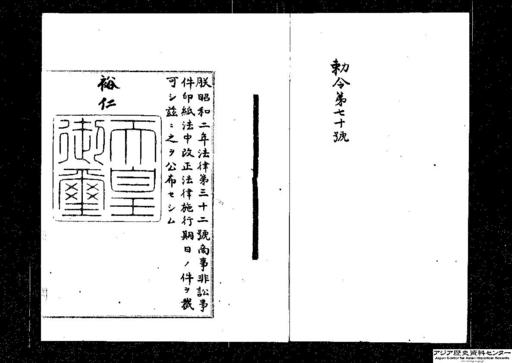 勅令第七十號
朕昭和二年法律第三十二號商事非訟事
件印紙法中改正法律施行期日ノ件ヲ裁
可シ茲ニ之ヲ公布セシム
裕仁
天皇
御璽
アジア歴史資料センター
Japan Center for Asian Historical Records